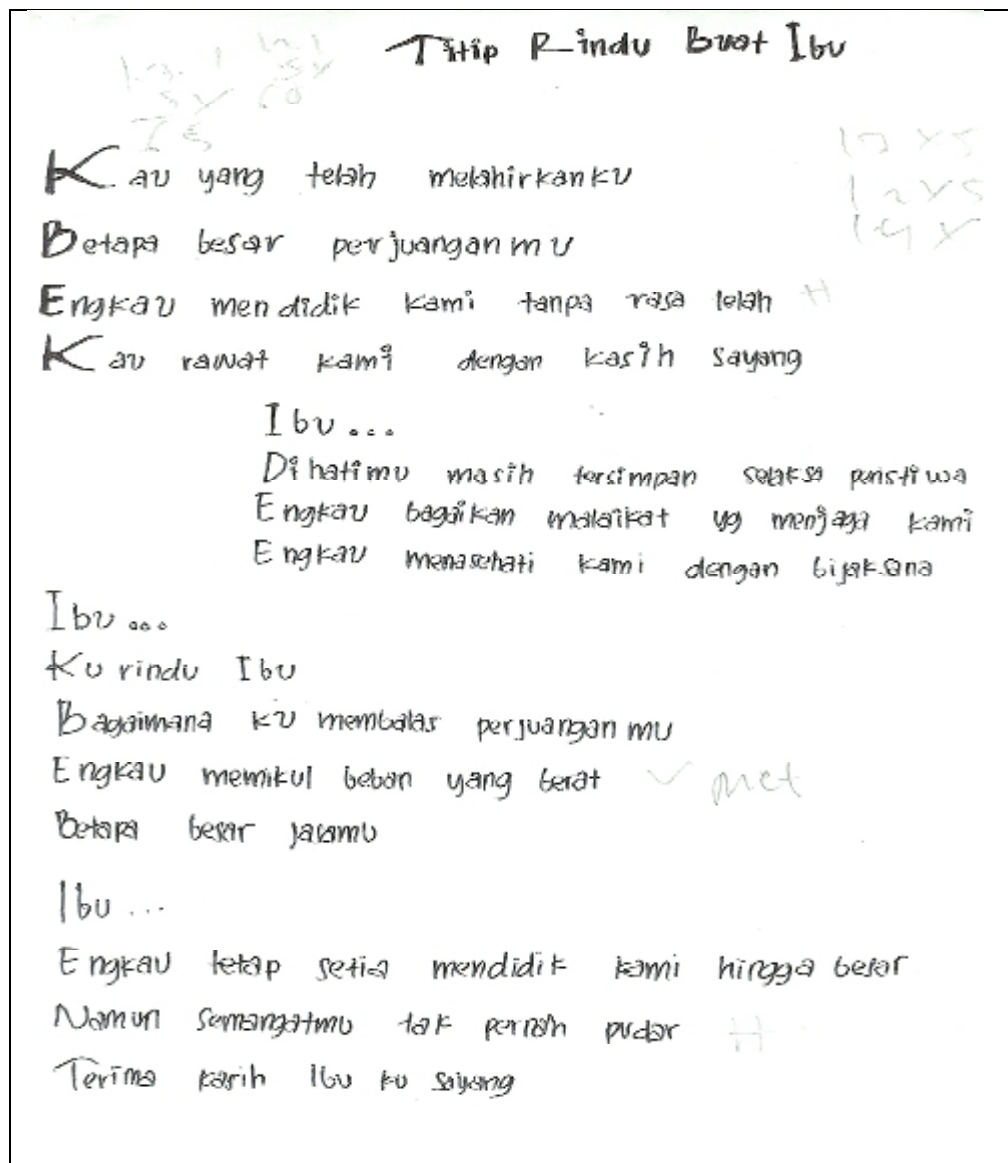 Titip Rindu Buat Ibu
Kau yang telah melahirkanku
Betapa besar perjuanganmu
Engkau mendidik kami tanpa rasa lelah H
Kau rawat kami dengan kasih sayang
Ibu...
Dihatimu masih tersimpan selaksa peristiwa
Engkau bagaikan malaikat yg menjaga kami
Engkau menasehati kami dengan bijaksana
Ibu...
Ku rindu Ibu
Bagaimana ku membalas perjuanganmu
Engkau memikul beban yang berat
Betapa besar jasamu
Ibu...
Engkau tetap setia mendidik kami hingga besar
Namun semangatmu tak pernah pudar H
Terima kasih Ibu ku sayang